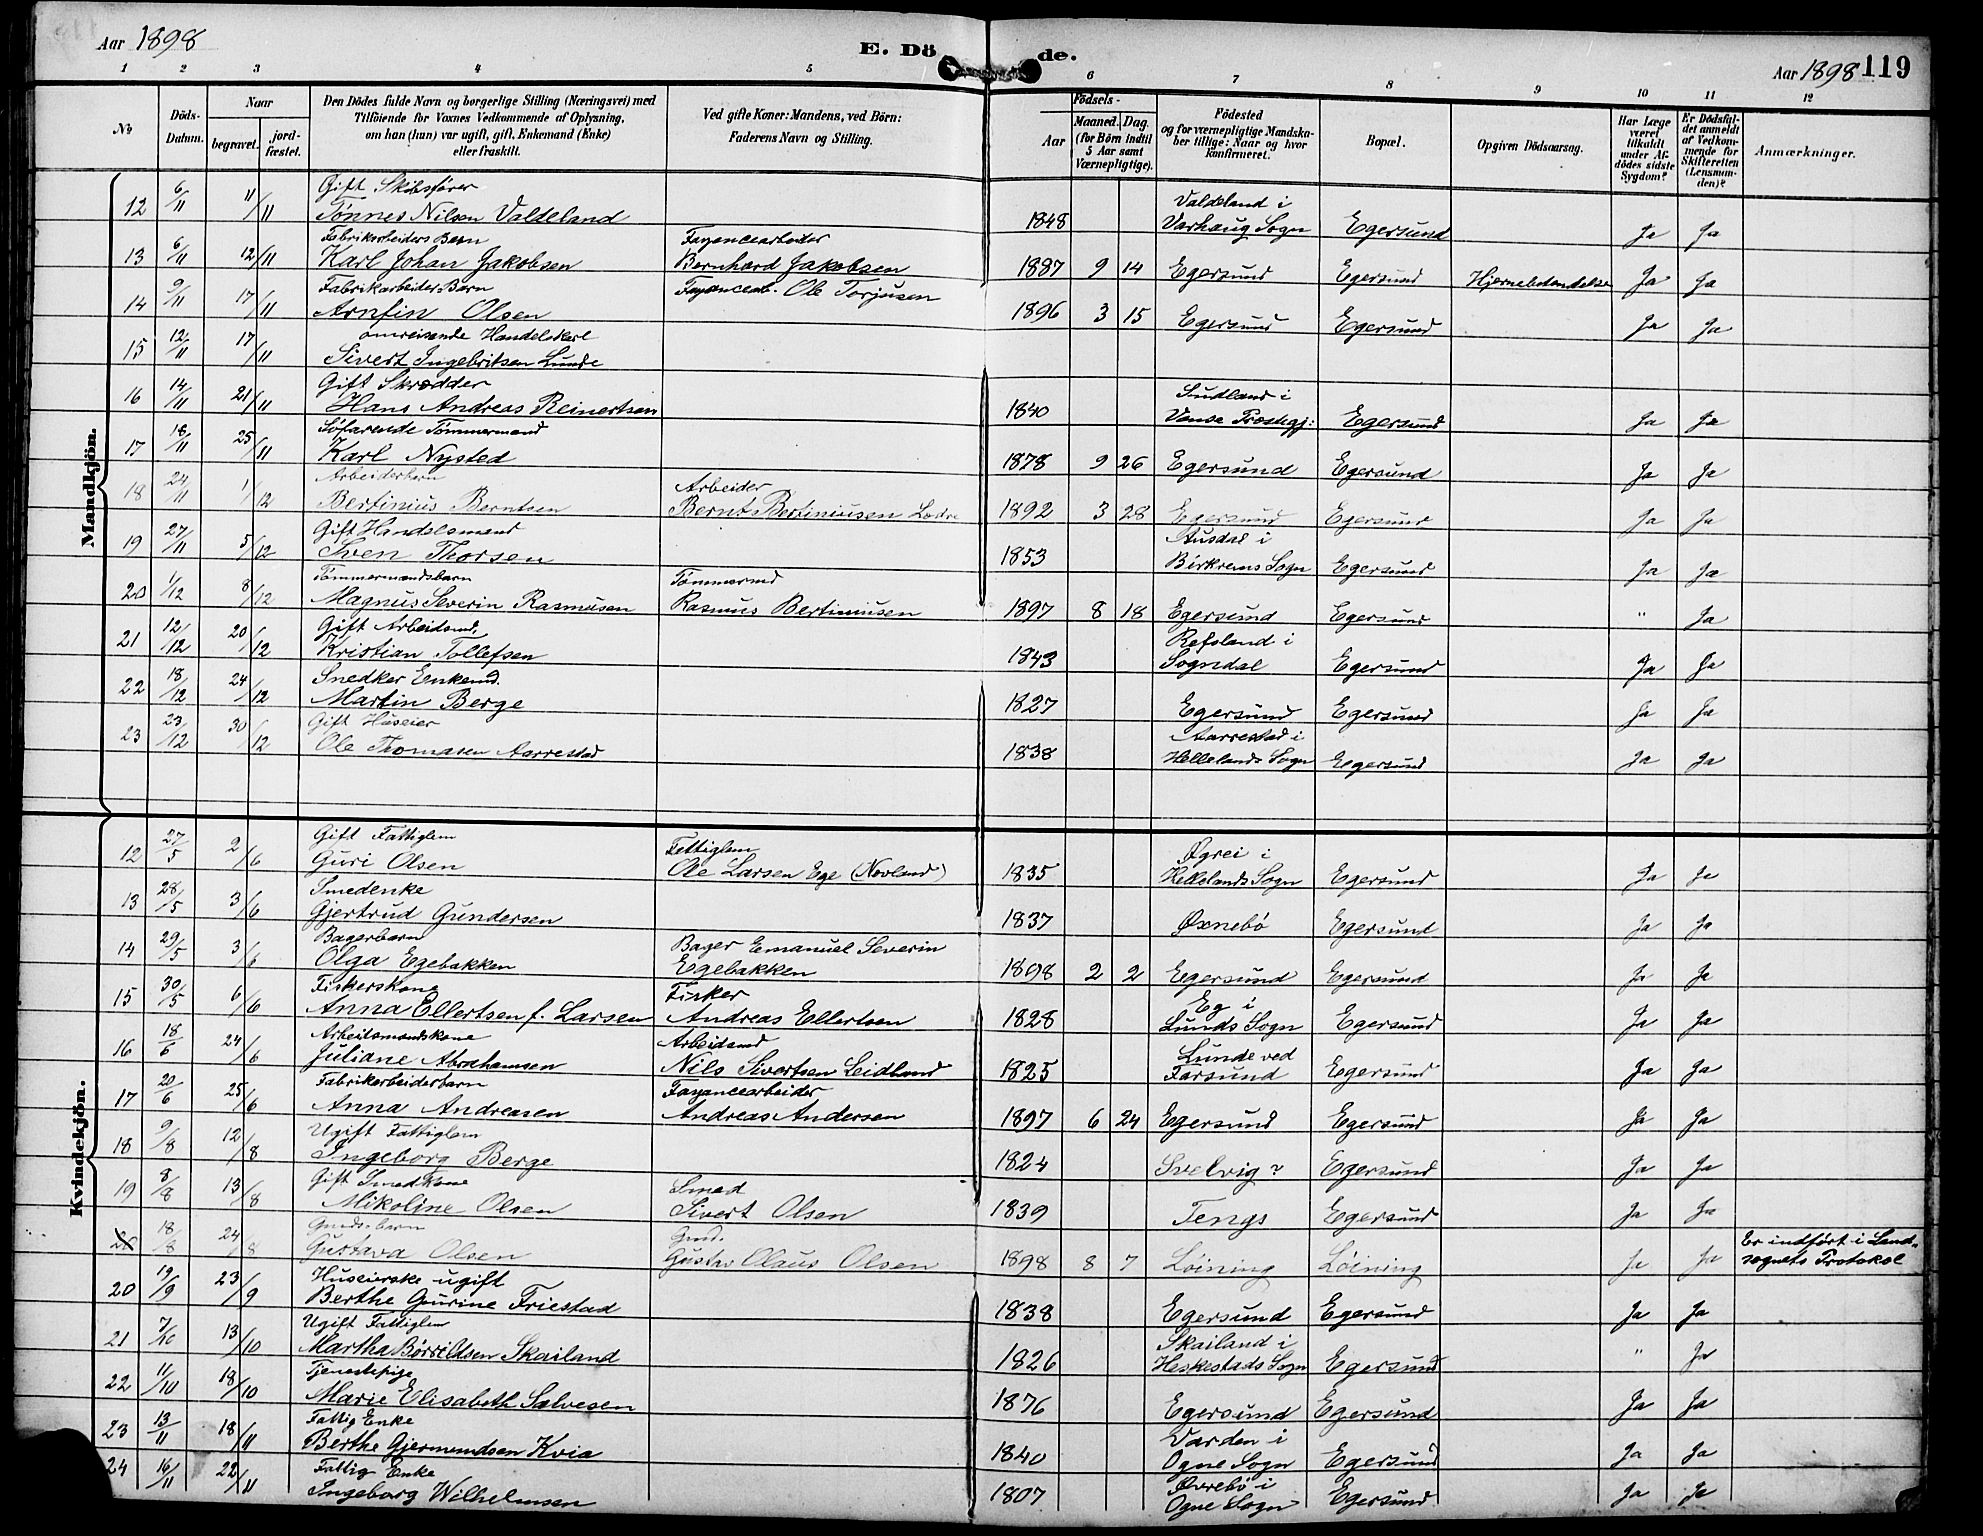 Aar 1898
E. Dö de.
Aar 1898 119
1 2 3 4 5 6 7 8 9 10 11 12
No
Döds-Datum.
Naar
begravet. jordfæstet.
Den Dödes fulde Navn og borgerlige Stilling (Næringsvei) med
Tilföiende for Voxnes Vedkommende af Oplysning,
om han (hun) var ugift, gift, Enkemand (Enke)
eller fraskilt.
Ved gifte Koner: Mandens, ved Börn:
Faderens Navn og Stilling.
Födsels-
Aar Maaned. Dag.
(for Börn indtil
5 Aar samt
Værnepligtige).
Födested
og for værnepligtige Mandskaber tillige: Naar og hvor
konfirmeret.
Bopæl.
Opgiven Dödsaarsag.
Har Læge
været
tilkaldt
under Afdödes sidste
Sygdom?
Er Dödsfaldet anmeldt
af Vedkommende for
Skifteretten
(Lensmanden)?
Anmærkninger.
Mandkjön.
Gift Skibsfører Valdeland i
12 6/11 11/11 Tønnes Nilsen Valdeland 1848 Varhaug Sogn Egersund Ja Ja
Fabrikarbeiders Barn Fayancearbeider
13 6/11 12/11 Karl Johan Jakobsen Bernhard Jakobsen 1887 9 14 Egersund Egersund Hjernebetændelse Ja Ja
Fabrikarbeiders Barn Fayancearb. Ole Torjusen
14 9/11 17/11 Arnfin Olsen 1896 3 15 Egersund Egersund Ja Ja
omreisende Handelskarl
15 12/11 17/11 Sivert Ingebriktsen Lunde
Gift Skrædder Sudland i
16 14/11 21/11 Hans Andreas Reinertsen 1840 Vanse Præstegj: Egersund Ja Ja
Søfarende Tømmermand
17 18/11 25/11 Karl Nysted 1878 9 26 Egersund Egersund Ja Ja
Arbeiderbarn Arbeider
18 24/11 1/12 Bertinius Berntsen Bernt Bertiniusen 1892 3 28 Egersund Egersund Ja Ja
Gift Handelsmand Ausdal i
19 27/11 5/12 Sven Thorsen 1853 Birkrems Sogn Egersund Ja Ja
Tømmermandsbarn Tømmermd
20 1/12 8/12 Magnus Severin Rasmusen Rasmus Bertiniusen 1897 8 18 Egersund Egersund " Ja
Gift Arbeidsmd. Refsland i
21 12/12 20/12 Kristian Tollefsen 1843 Sogndal Egersund Ja Ja
Snedker Enkemd.
22 18/12 24/12 Martin Berge 1827 Egersund Egersund Ja Ja
Gift Huseier Aarrestad i
23 23/12 30/12 Ole Thomasen Aarrestad 1838 Hellelands Sogn Egersund Ja Ja
Kvindekjön.
Gift Fattiglem Fattiglem Øgrei i
12 27/5 2/6 Guri Olsen Ole Larsen Ege (Novland) 1835 Hellelands Sogn Egersund Ja Ja
Smedenke
13 28/5 3/6 Gjertrud Gundersen 1837 Øxnebø Egersund Ja Ja
Bagerbarn Bager Emanuel Severin
14 29/5 3/6 Olga Egebakken Egebakken 1898 2 2 Egersund Egersund Ja Ja
Fiskerskone Fisker Eg i
15 30/5 6/6 Anna Ellertsen f. Larsen Andreas Ellertsen 1828 Lunds Sogn Egersund Ja Ja
Arbeidsmandskone Arbeidsmd Lunde ved
16 18/6 24/6 Juliane Abrahamsen Nils Sivertsen Leidland 1825 Farsund Egersund Ja Ja
Fabrikarbeiderbarn Fayancearbeider
17 20/6 25/6 Anna Andreasen Andreas Andersen 1897 6 24 Egersund Egersund Ja Ja
Ugift Fattiglem
18 9/8 12/8 Ingeborg Berge 1824 Svelvig? Egersund Ja Ja
Gift Smedkone Smed
19 8/8 13/8 Mikoline Olsen Sivert Olsen 1839 Tengs Egersund Ja Ja
Gmds.barn Gmd. Er indført i Land-
20 18/8 24/8 Gustava Olsen Gustav Olaus Olsen 1898 8 7 Løining Løining Ja Ja sognets Protokol
Huseierske ugift
20 19/9 23/9 Berthe Gurine Friestad 1838 Egersund Egersund Ja Ja
Ugift Fattiglem Skailand i
21 7/10 13/10 Martha Børrildsen Skailand 1826 Heskestads Sogn Egersund " Ja
Tjenestepige
22 11/10 18/10 Marie Elisabeth Salvesen 1876 Egersund Egersund Ja Ja
Fattig Enke Varden i
23 13/11 18/11 Berthe Gjermundsen Kvia 1840 Ogne Sogn Egersund Ja Ja
Fattig Enke Øvrebø i
24 16/11 22/11 Ingeborg Wilhelmsen 1807 Ogne Sogn Egersund Ja Ja